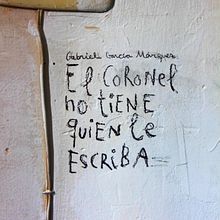 Gabriel García Márquez
El coronel
no tiene
quien le
escriba